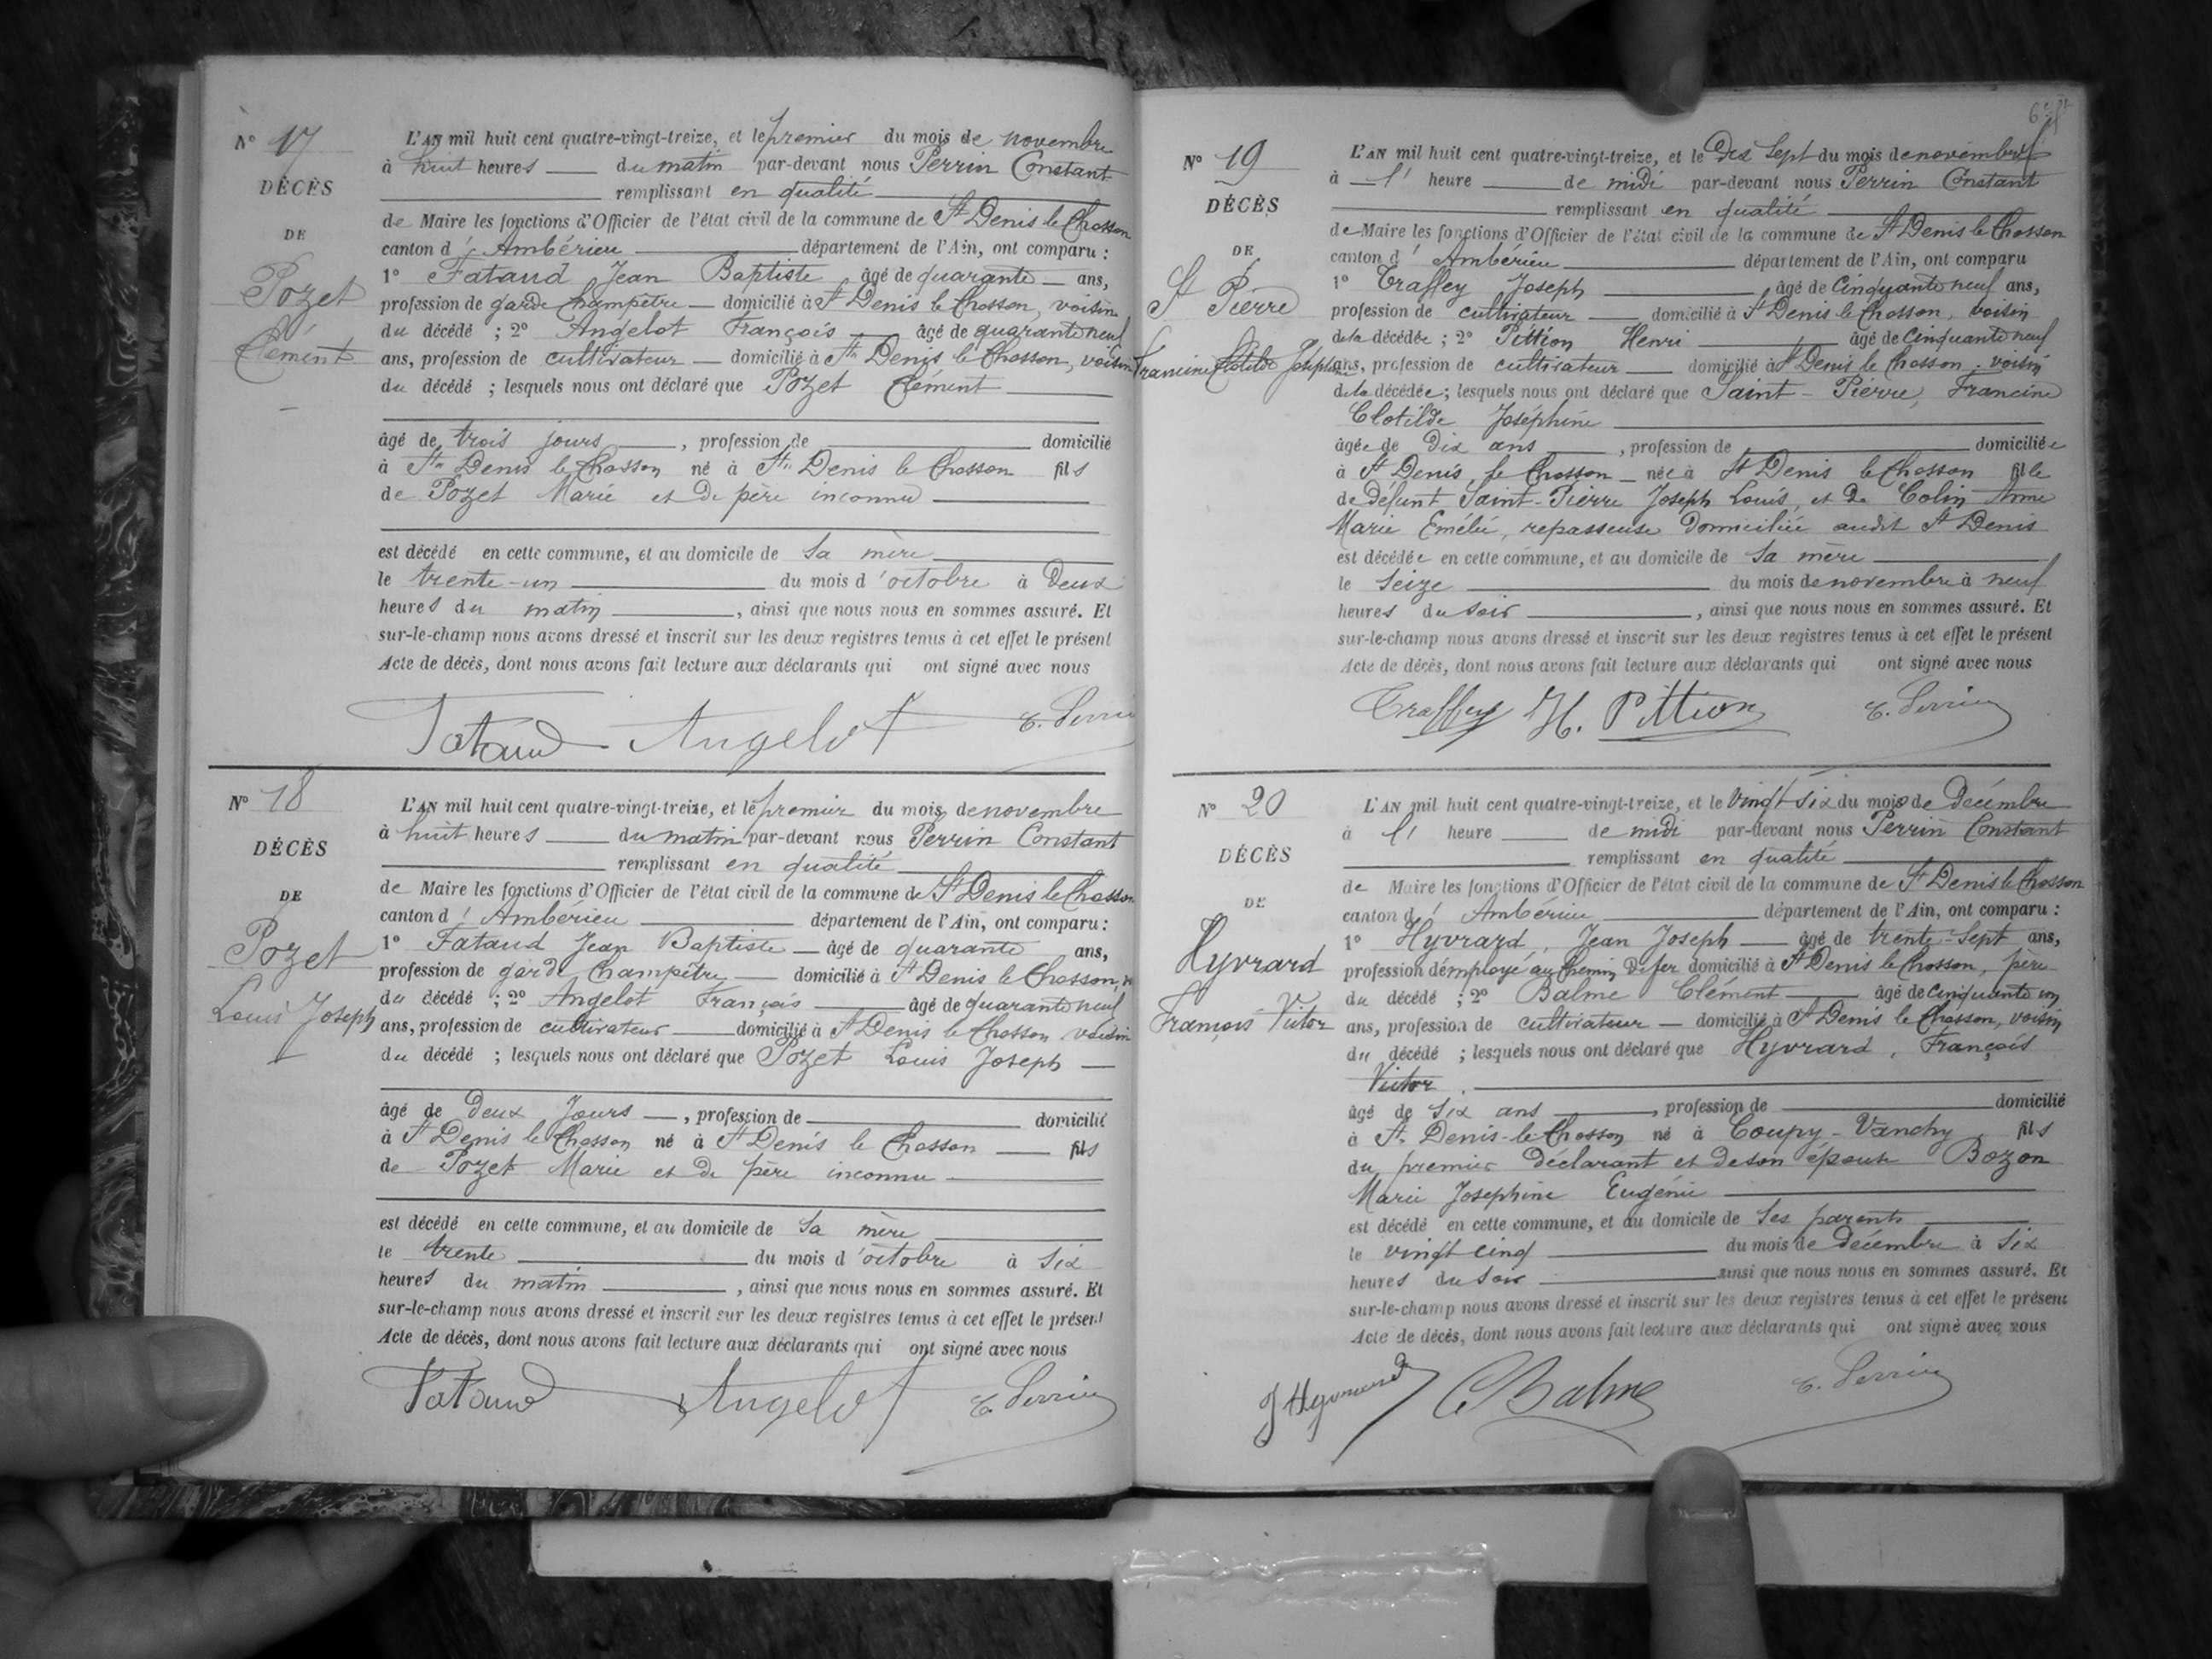 N° 17
DÉCÈS
DE
Pozet
Clément
L'AN mil huit cent quatre-vingt-treize, et le premier du mois de novembre
à huit heures du matin par-devant nous Perrin Constant
remplissant en qualité
de Maire les fonctions d'Officier de l'état civil de la commune de St Denis le Chosson
canton d'Ambérieu département de l'Ain, ont comparu :
1° Fataud Jean Baptiste âgé de quarante ans,
profession de garde champêtre domicilié à St Denis le Chosson, voisin
du décédé ; 2° Angelot François âgé de quarante neuf
ans, profession de cultivateur domicilié à St Denis le Chosson, voisin
du décédé ; lesquels nous ont déclaré que Pozet Clément
âgé de trois jours, profession de domicilié
à St Denis le Chosson né à St Denis le Chosson fils
de Pozet Marie et de père inconnu
est décédé en cette commune, et au domicile de sa mère
le trente-un du mois d'octobre à deux
heures du matin, ainsi que nous nous en sommes assuré. Et
sur-le-champ nous avons dressé et inscrit sur les deux registres tenus à cet effet le présent
Acte de décès, dont nous avons fait lecture aux déclarants qui ont signé avec nous
Fataud Angelot C. Perrin
N° 18
DÉCÈS
DE
Pozet
Louis Joseph
L'AN mil huit cent quatre-vingt-treize, et le premier du mois de novembre
à huit heures du matin par-devant nous Perrin Constant
remplissant en qualité
de Maire les fonctions d'Officier de l'état civil de la commune de St Denis le Chosson
canton d'Ambérieu département de l'Ain, ont comparu :
1° Fataud Jean Baptiste âgé de quarante ans,
profession de garde champêtre domicilié à St Denis le Chosson,
du décédé ; 2° Angelot François âgé de quarante neuf
ans, profession de cultivateur domicilié à St Denis le Chosson voisin
du décédé ; lesquels nous ont déclaré que Pozet Louis Joseph
âgé de deux jours, profession de domicilié
à St Denis le Chosson né à St Denis le Chosson fils
de Pozet Marie et de père inconnu
est décédé en cette commune, et au domicile de sa mère
le trente du mois d'octobre à six
heures du matin, ainsi que nous nous en sommes assuré. Et
sur-le-champ nous avons dressé et inscrit sur les deux registres tenus à cet effet le présent
Acte de décès, dont nous avons fait lecture aux déclarants qui ont signé avec nous
Fataud Angelot C. Perrin
N° 19
DÉCÈS
DE
St Pierre
Francine Clotilde Joséphine
L'AN mil huit cent quatre-vingt-treize, et le dix sept du mois de novembre
à l' heure de midi par-devant nous Perrin Constant
remplissant en qualité
de Maire les fonctions d'Officier de l'état civil de la commune de St Denis le Chosson
canton d'Ambérieu département de l'Ain, ont comparu
1° Traffey Joseph, âgé de cinquante neuf ans,
profession de cultivateur domicilié à St Denis le Chosson, voisin
de la décédée ; 2° Pittion Henri âgé de cinquante neuf
ans, profession de cultivateur domicilié à St Denis le Chosson, voisin
de la décédée ; lesquels nous ont déclaré que Saint-Pierre, Francine
Clotilde Joséphine
âgée de dix ans, profession de domiciliée
à St Denis le Chosson née à St Denis le Chosson fille
de défunt Saint-Pierre Joseph Louis, et de Colin Anne
Marie Emélie, repasseuse domiciliée audit St Denis
est décédée en cette commune, et au domicile de sa mère
le seize du mois de novembre à neuf
heures du soir, ainsi que nous nous en sommes assuré. Et
sur-le-champ nous avons dressé et inscrit sur les deux registres tenus à cet effet le présent
Acte de décès, dont nous avons fait lecture aux déclarants qui ont signé avec nous
Traffey H. Pittion C. Perrin
N° 20
DÉCÈS
DE
Hyvrard
François Victor
L'AN mil huit cent quatre-vingt-treize, et le vingt six du mois de décembre
à l' heure de midi par-devant nous Perrin Constant
remplissant en qualité
de Maire les fonctions d'Officier de l'état civil de la commune de St Denis le Chosson
canton d'Ambérieu département de l'Ain, ont comparu :
1° Hyvrard, Jean Joseph âgé de trente-sept ans,
profession d'employé au chemin de fer domicilié à St Denis le Chosson, père
du décédé ; 2° Balme Clément âgé de cinquante un
ans, profession de cultivateur domicilié à St Denis le Chosson, voisin
du décédé ; lesquels nous ont déclaré que Hyvrard, François
Victor.
âgé de six ans, profession de domicilié
à St Denis-le-Chosson né à Coupy-Vanchy fils
du premier déclarant et de son épouse Bozon
Marie Josephine Eugénie
est décédé en cette commune, et au domicile de ses parents
le vingt cinq du mois de décembre à six
heures du soir ainsi que nous nous en sommes assuré. Et
sur-le-champ nous avons dressé et inscrit sur les deux registres tenus à cet effet le présent
Acte de décès, dont nous avons fait lecture aux déclarants qui ont signé avec nous
J Hyvrard C Balme C. Perrin